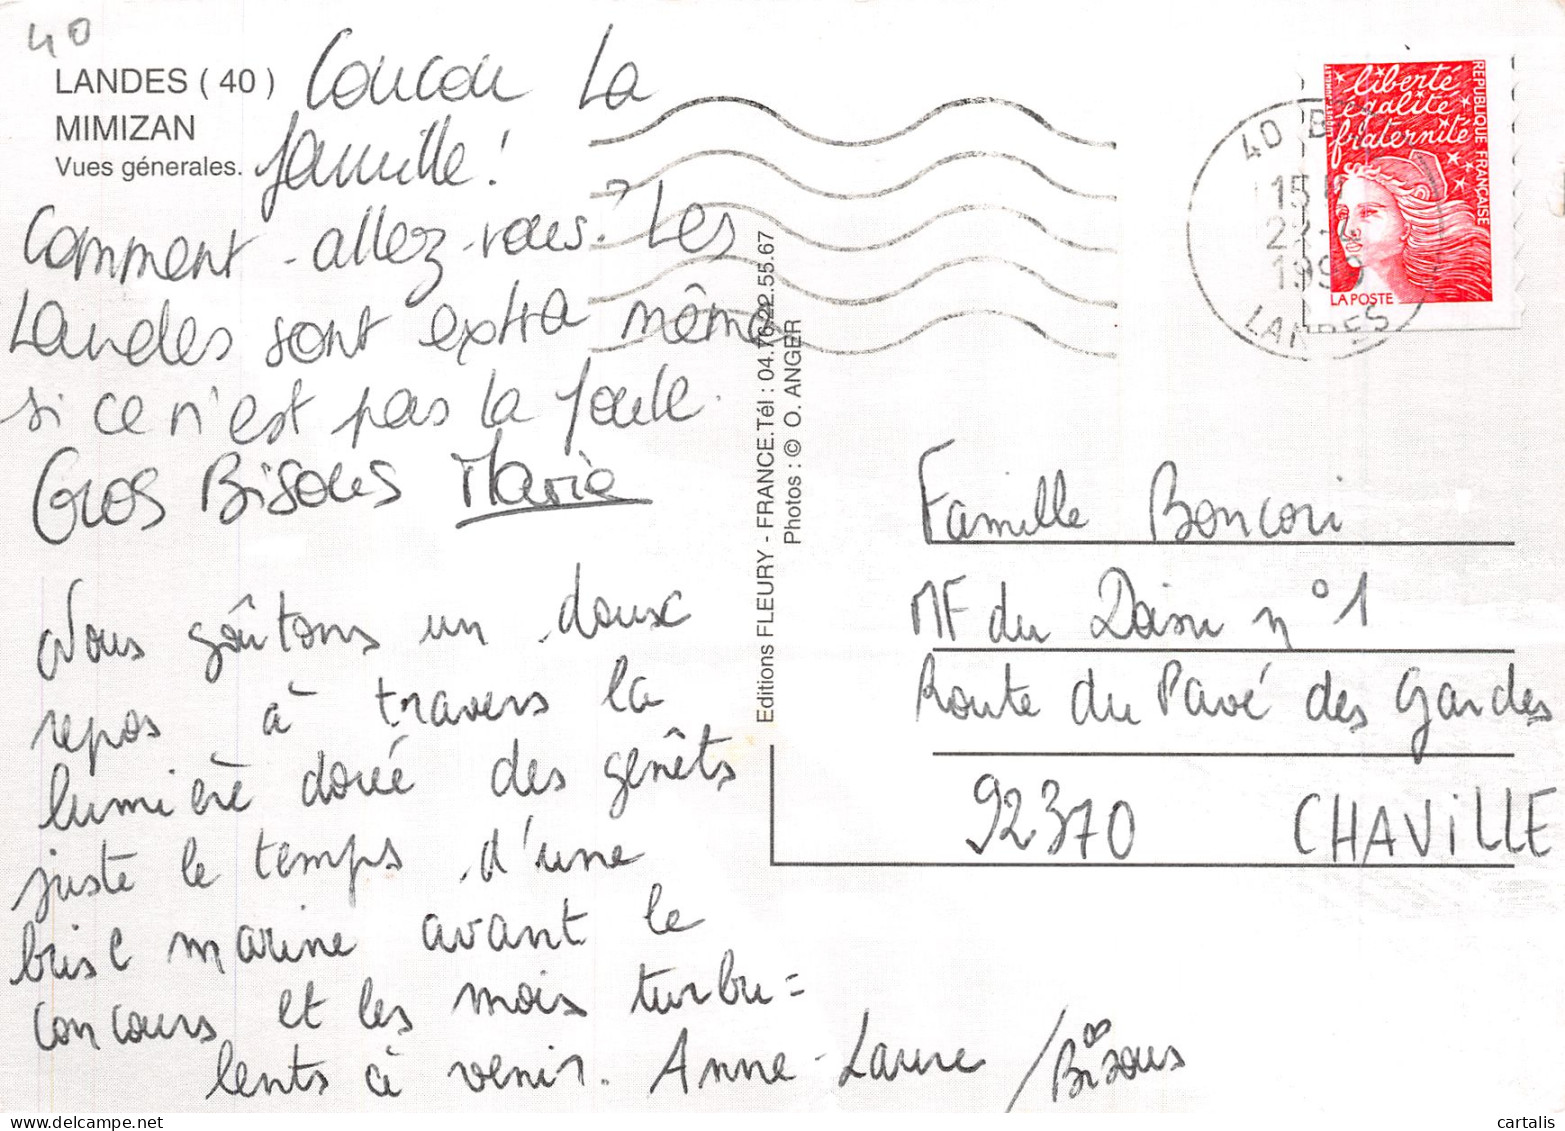 40
LANDES ( 40 )
MIMIZAN
Vues génerales.
Coucou La
famille !
Comment allez-vous ? Les
Landes sont extra même
si ce n'est pas la foule.
Gros Bisous Marie
Nous goûtons un doux
repos à travers la
lumière dorée des genêts
juste le temps d'une
brise marine avant le
concours et les mois turbu=
lents à venir. Anne-Laure / Bisous
Editions FLEURY - FRANCE.Tél : 04.76.22.55.67
Photos : © O. ANGER
40
15
1999
LANDES
liberté
égalité
fraternité
REPUBLIQUE FRANÇAISE
LA POSTE
Famille Boncori
MF du Doisu n°1
Route du Pavé des Gardes
92370 CHAVILLE